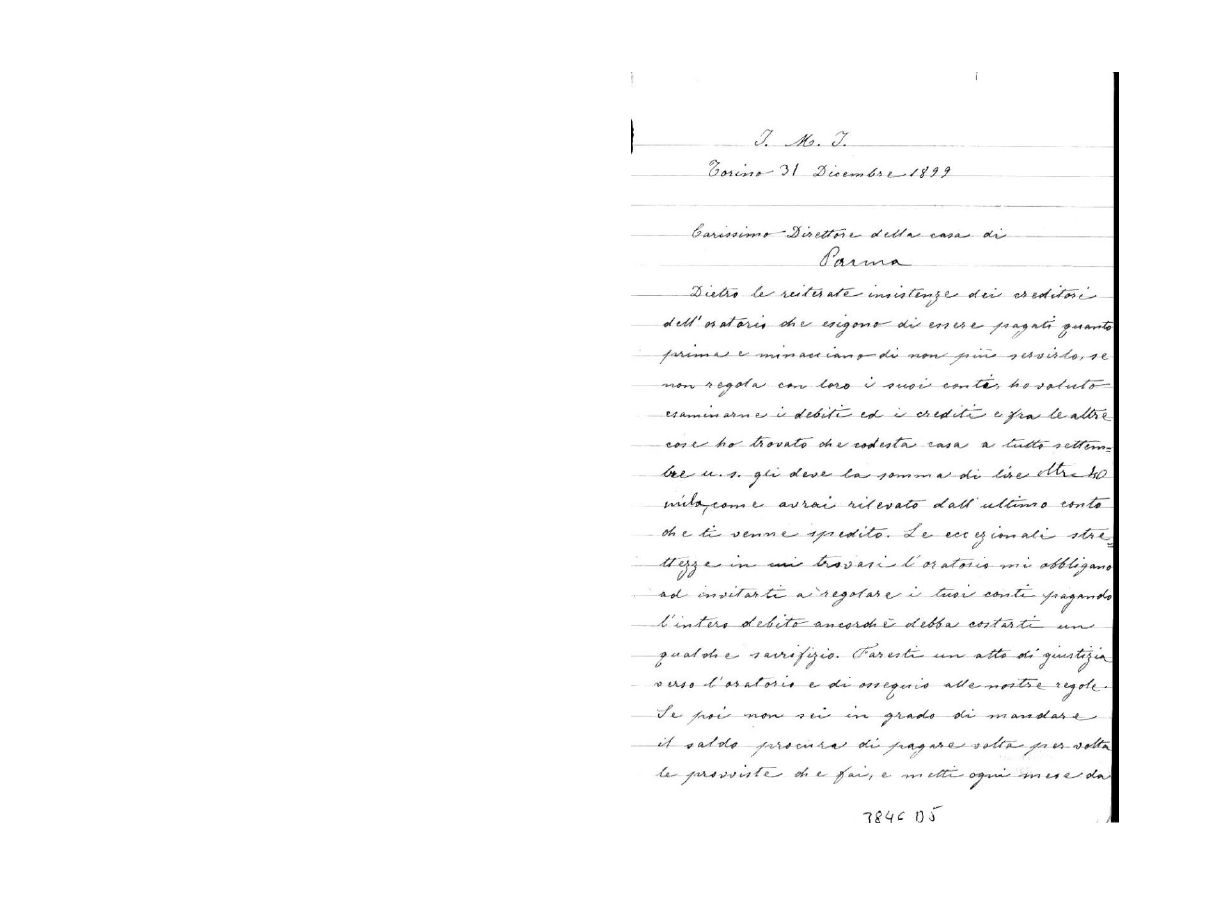 J. M. J.
Torino 31 Dicembre 1899
Carissimo Direttore della casa di
Parma
Dietro le reiterate insistenze dei creditori
dell'oratorio che esigono di essere pagati quanto
prima e minacciano di non più servirlo, se
non regola con loro i suoi conti, ho voluto
esaminarne i debiti ed i crediti e fra le altre
cose ho trovato che codesta casa a tutto settem=
bre u. s. gli deve la somma di lire oltre 40
mila, come avrai rilevato dall'ultimo conto
che ti venne spedito. Le eccezionali stre=
ttezze in cui trovasi l'oratorio mi obbligano
ad invitarti a regolare i tuoi conti pagando
l'intero debito ancorchè debba costarti un
qualche sacrifizio. Faresti un atto di giustizia
verso l'oratorio e di ossequio alle nostre regole.
Se poi non sei in grado di mandare
il saldo procura di pagare volta per volta
le provviste che fai, e metti ogni mese da
3846 D5